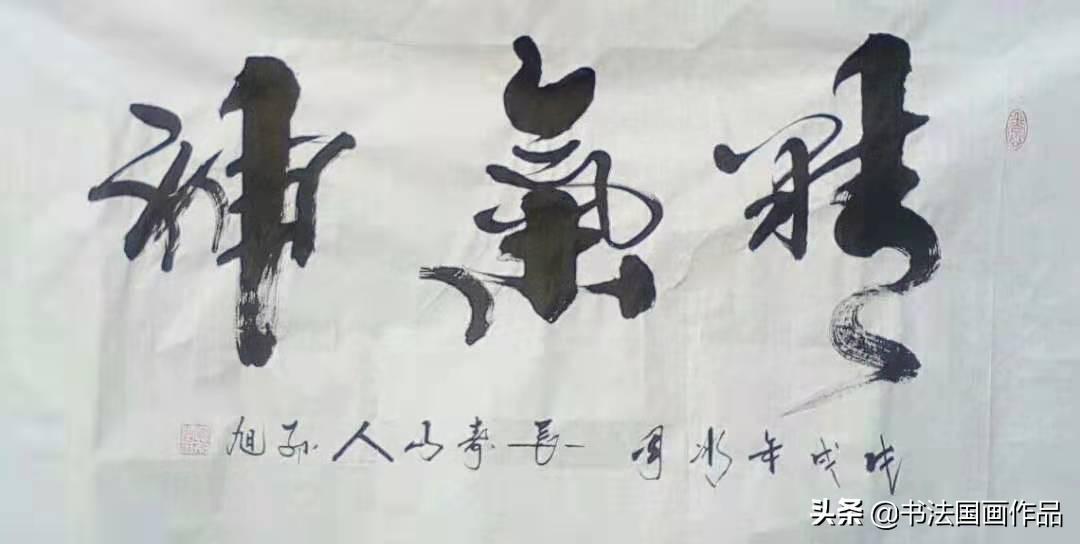 精氣神
戊戌年 長壽山人孫旭
头条 @书法国画作品